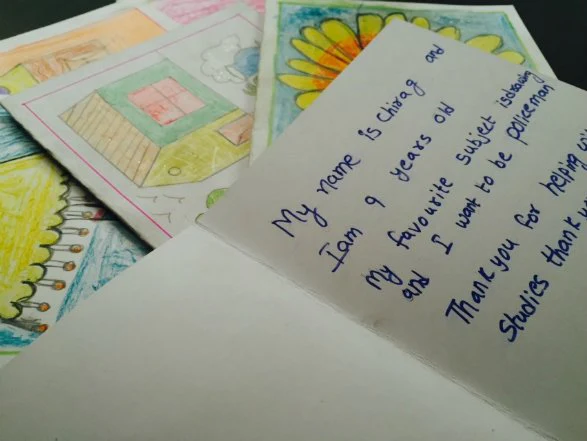 My name is chirag and
Iam 9 years old
My favourite subject isdrawing
and I want to be policeman
Thankyou for helping
Studies thank